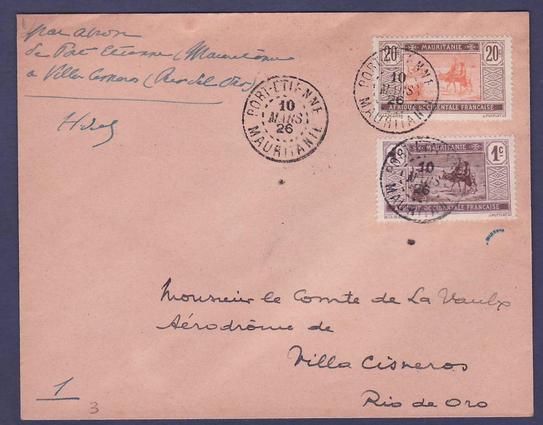 par avion
de Port Etienne (Mauritanie
a Villa Cisneros (Rio del Oro)
20c MAURITANIE 20c
AFRIQUE OCCIDENTALE FRANÇAISE
PORT-ETIENNE
10
MARS
26
MAURITANIE
PORT-ETIENNE
10
MARS
26
MAURITANIE
MAURITANIE 1c
AFRIQUE OCCIDENTALE FRANÇAISE
PORT
10
MARS
26
MAURIT
Monsieur le Comte de La Vaulx
Aérodrôme de
Villa Cisneros
Rio de Oro
1
3